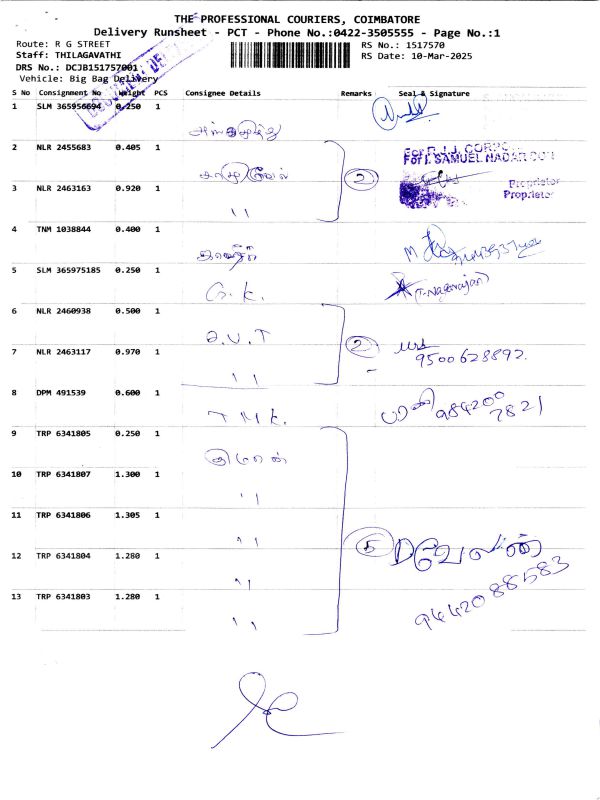 THE PROFESSIONAL COURIERS, COIMBATORE
Delivery Runsheet - PCT - Phone No.:0422-3505555 - Page No.:1
Route: R G STREET
RS No.: 1517570
Staff: THILAGAVATHI
RS Date: 10-Mar-2025
DRS No.: DCJB151757001
Vehicle: Big Bag Delivery
S No Consignment No Weight PCS Consignee Details Remarks Seal & Signature
1 SLM 365956694 0.250 1
2 NLR 2455683 0.405 1
For R.J.J. CORPO
For I. SAMUEL NADAR
2
3 NLR 2463163 0.920 1
"
Proprietor
Proprietor
4 TNM 1038844 0.400 1
5 SLM 365975185 0.250 1
G. K. (T. Nagarajan)
6 NLR 2460938 0.500 1
உ.V.T 2
7 NLR 2463117 0.970 1
" 9500628892.
8 DPM 491539 0.600 1
T M K. 984200
7821
9 TRP 6341805 0.250 1
குமரன்
10 TRP 6341807 1.300 1
"
11 TRP 6341806 1.305 1
" 5 வேலன்
12 TRP 6341804 1.280 1
"
13 TRP 6341803 1.280 1
" 9442088583